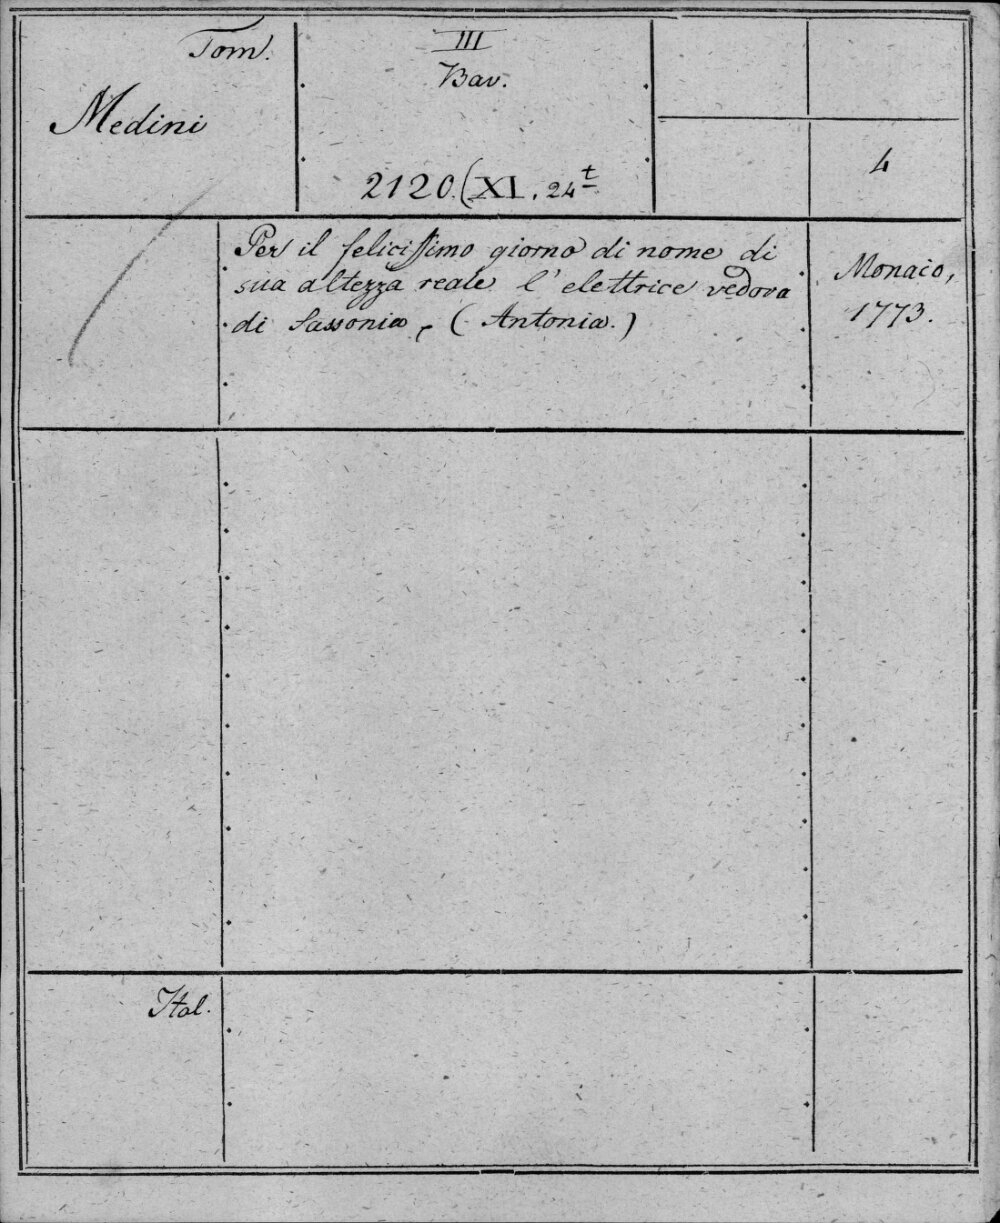 Tom.
Medini
III
Bav.
2120.(XI, 24t
4
Per il felicissimo giorno di nome di
sua altezza reale l' elettrice vedova
di Sassonia, (Antonia.)
Monaco,
1773.
Ital.